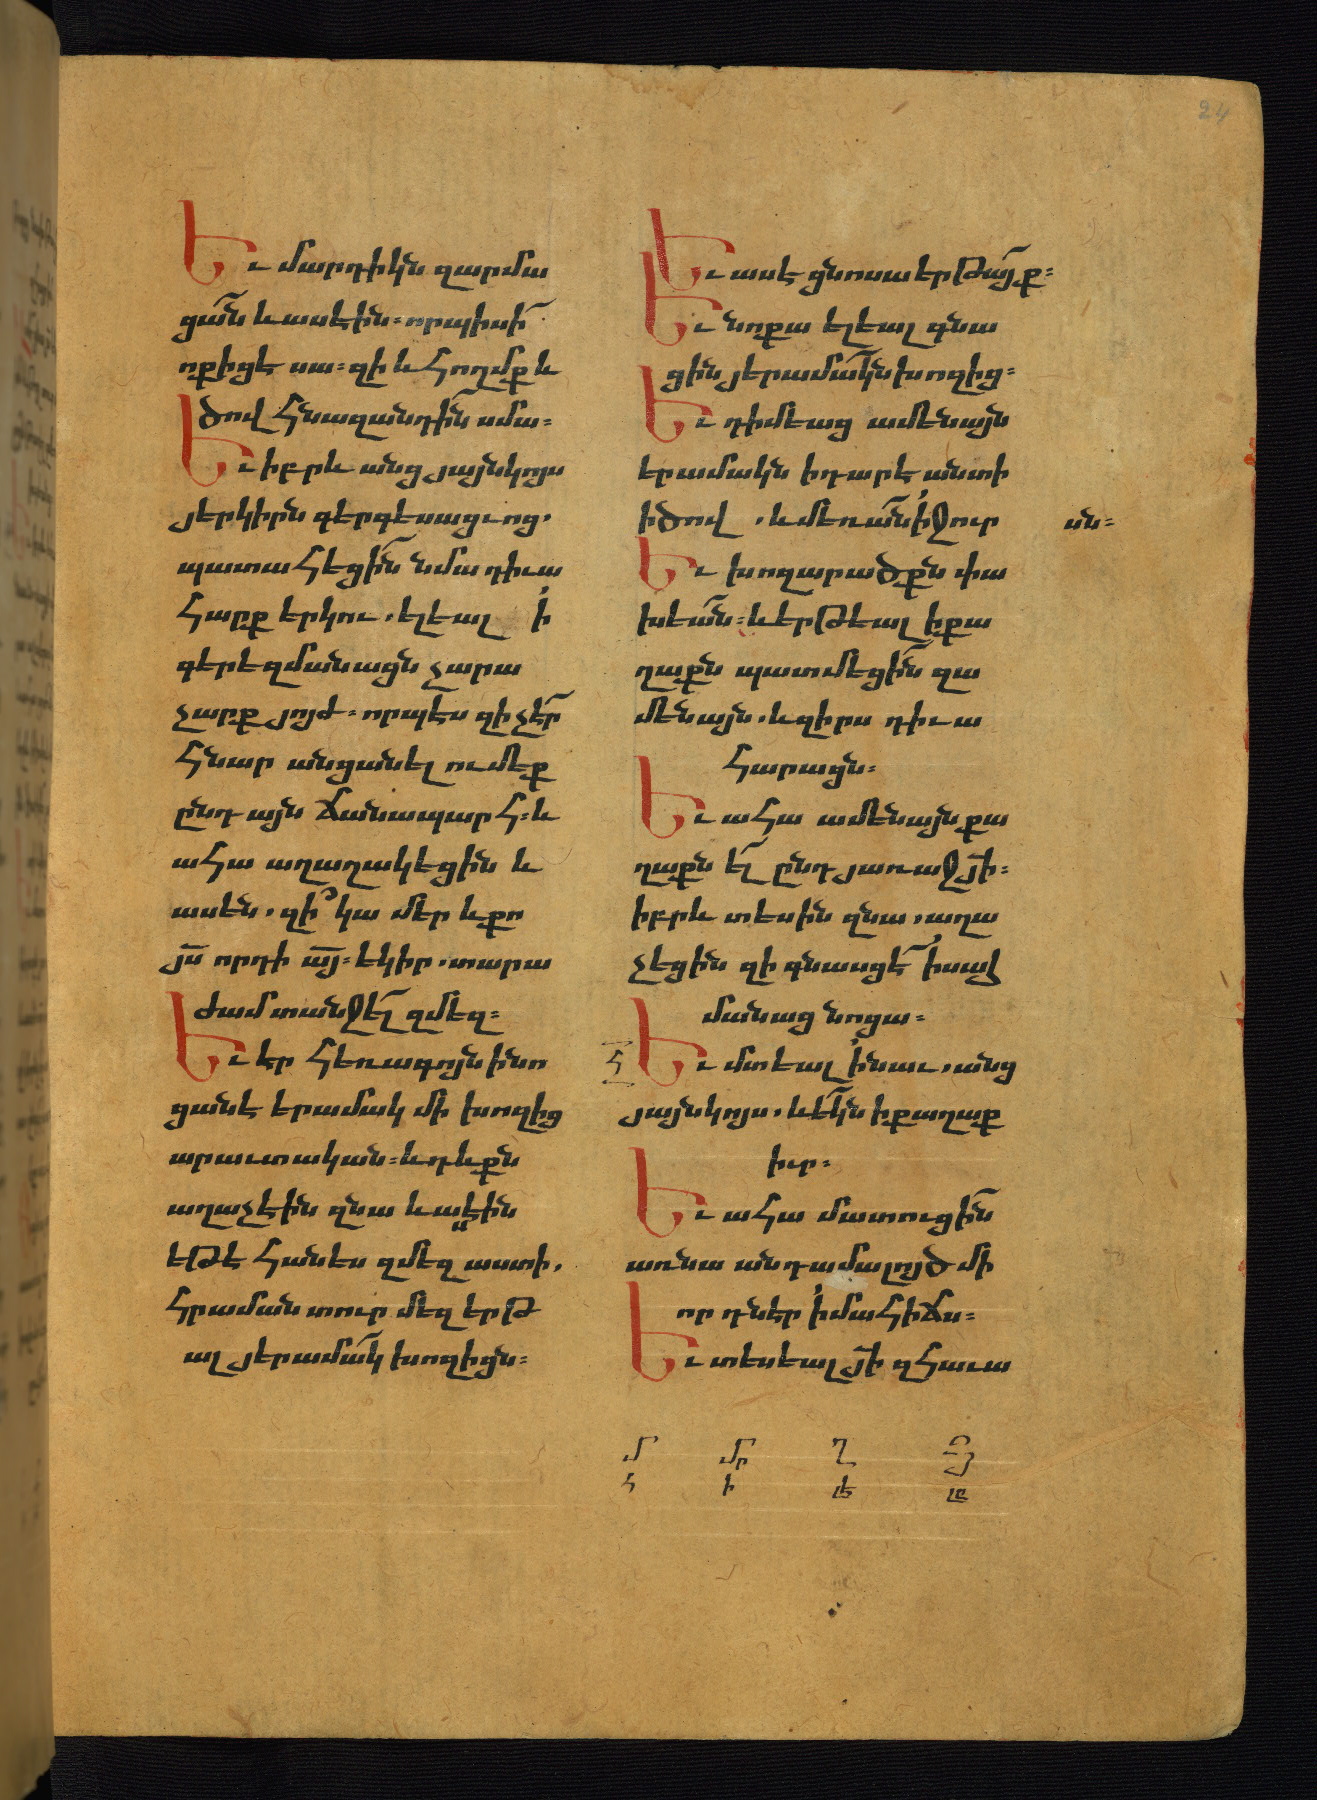 24
Եւ մարդիկն զարմա
ցան և ասեին։ որպիսի
ոքիցէ սա։ զի և հողմք և
ծով հնազանդին սմա։
Եւ իբրև անց յայնկոյս
յերկիրն գերգեսացւոց.
պատահեցին նմա դիւա
հարք երկու. ելեալ ի
գերեզմանացն չարա
չարք յոյժ։ որպէս զի չէր
հնար անցանել ումեք
ընդ այն ճանապարհ։ և
ահա աղաղակեցին և
ասեն. զի՞ կա մեր և քո
յս որդի այ։ եկիր. տարա
ժամ տանջել զմեզ։
Եւ էր հեռագոյն ի նո
ցանէ երամակ մի խոզից
արաւտական։ և դևքն
աղաչէին զնա և ասէին
եթէ հանես զմեզ աստի.
հրաման տուր մեզ երթ
ալ յերամակ խոզիցն։
Եւ ասէ ցնոսա երթայք։
Եւ նոքա ելեալ գնա
ցին յերամակն խոզից։
Եւ դիմեաց ամենայն
երամակն ի դարէ անտի
ի ծով. և մեռան ի ջուր
սն։
Եւ խոզարածքն փա
խեան։ և երթեալ ի քա
ղաքն պատմեցին զա
մենայն. և զիրս դիւա
հարացն։
Եւ ահա ամենայն քա
ղաքն ել ընդ յառաջ յի։
իբրև տեսին զնա. աղա
չեցին զի գնասցէ ի սահ
մանաց նոցա։
Հ
Եւ մտեալ ի նաւ. անց
յայնկոյս. և եկն ի քաղաք
իւր։
Եւ ահա մատուցին
առ նա անդամալոյծ մի
որ դնէր ի մահիճս։
Եւ տեսեալ յի զհաւա
մ մր ղ յ
հ ի լե լը